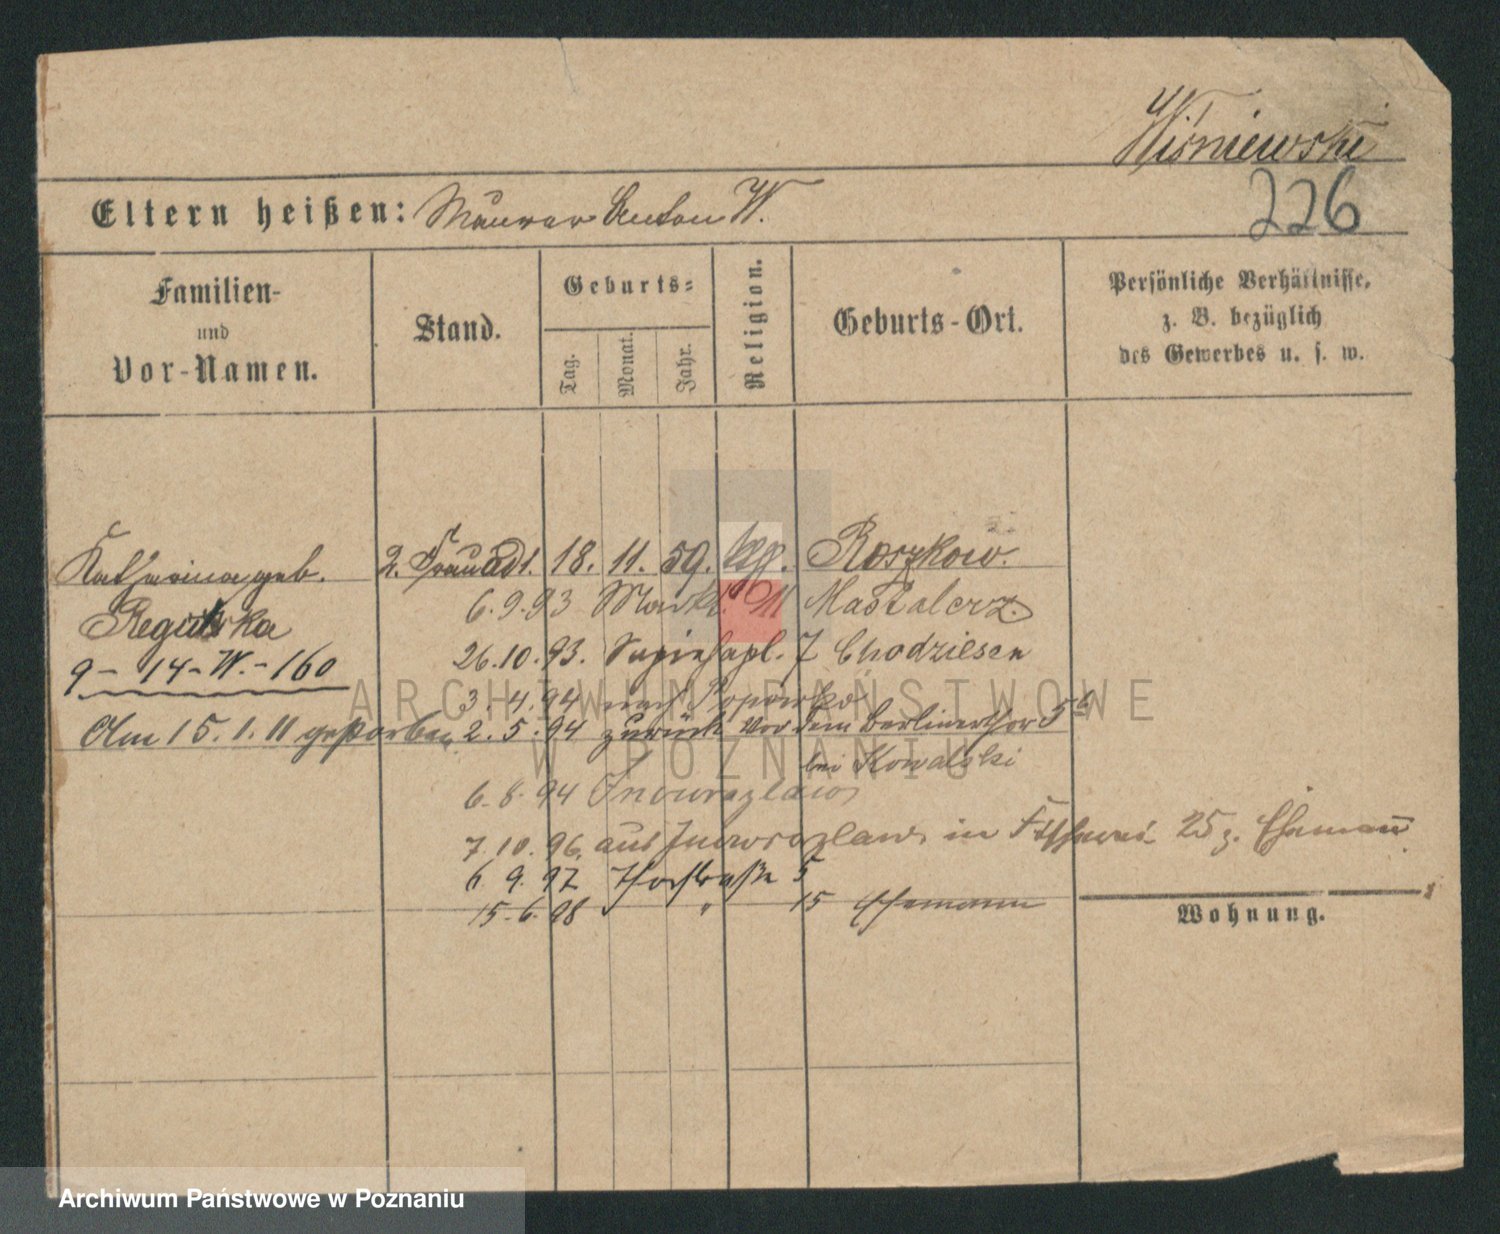 Wiśniewski
226
Eltern heißen: Maurer Anton W.
Familien-
und
Vor-Namen.
Stand.
Geburts-
Tag.
Monat.
Jahr.
Religion.
Geburts-Ort.
Persönliche Verhältnisse,
z. B. bezüglich
des Gewerbes u. s. w.
Katharina geb. 2. Frau ad 1. 18. 11. 59. Roszkow.
6. 9. 93 Markt. 11 Mastalerz
Regulska
26. 10. 93. Sapiehapl. 7 Chodziesen
9 - 14 - W. - 160
3. 4. 94 nach
Am 15. 1. 11 gestorben
2. 5. 94 zurück vor dem Berlinerthor 5
bei Kowalski
6. 8. 94 Inowrazlaw
7. 10. 96. aus Inowrazlaw in 25 z. Ehemann
6. 9. 97 Thorstraße 5
15. 6. 98 " 15 Ehemann
Wohnung.
ARCHIWUM PAŃSTWOWE
W POZNANIU
Archiwum Państwowe w Poznaniu